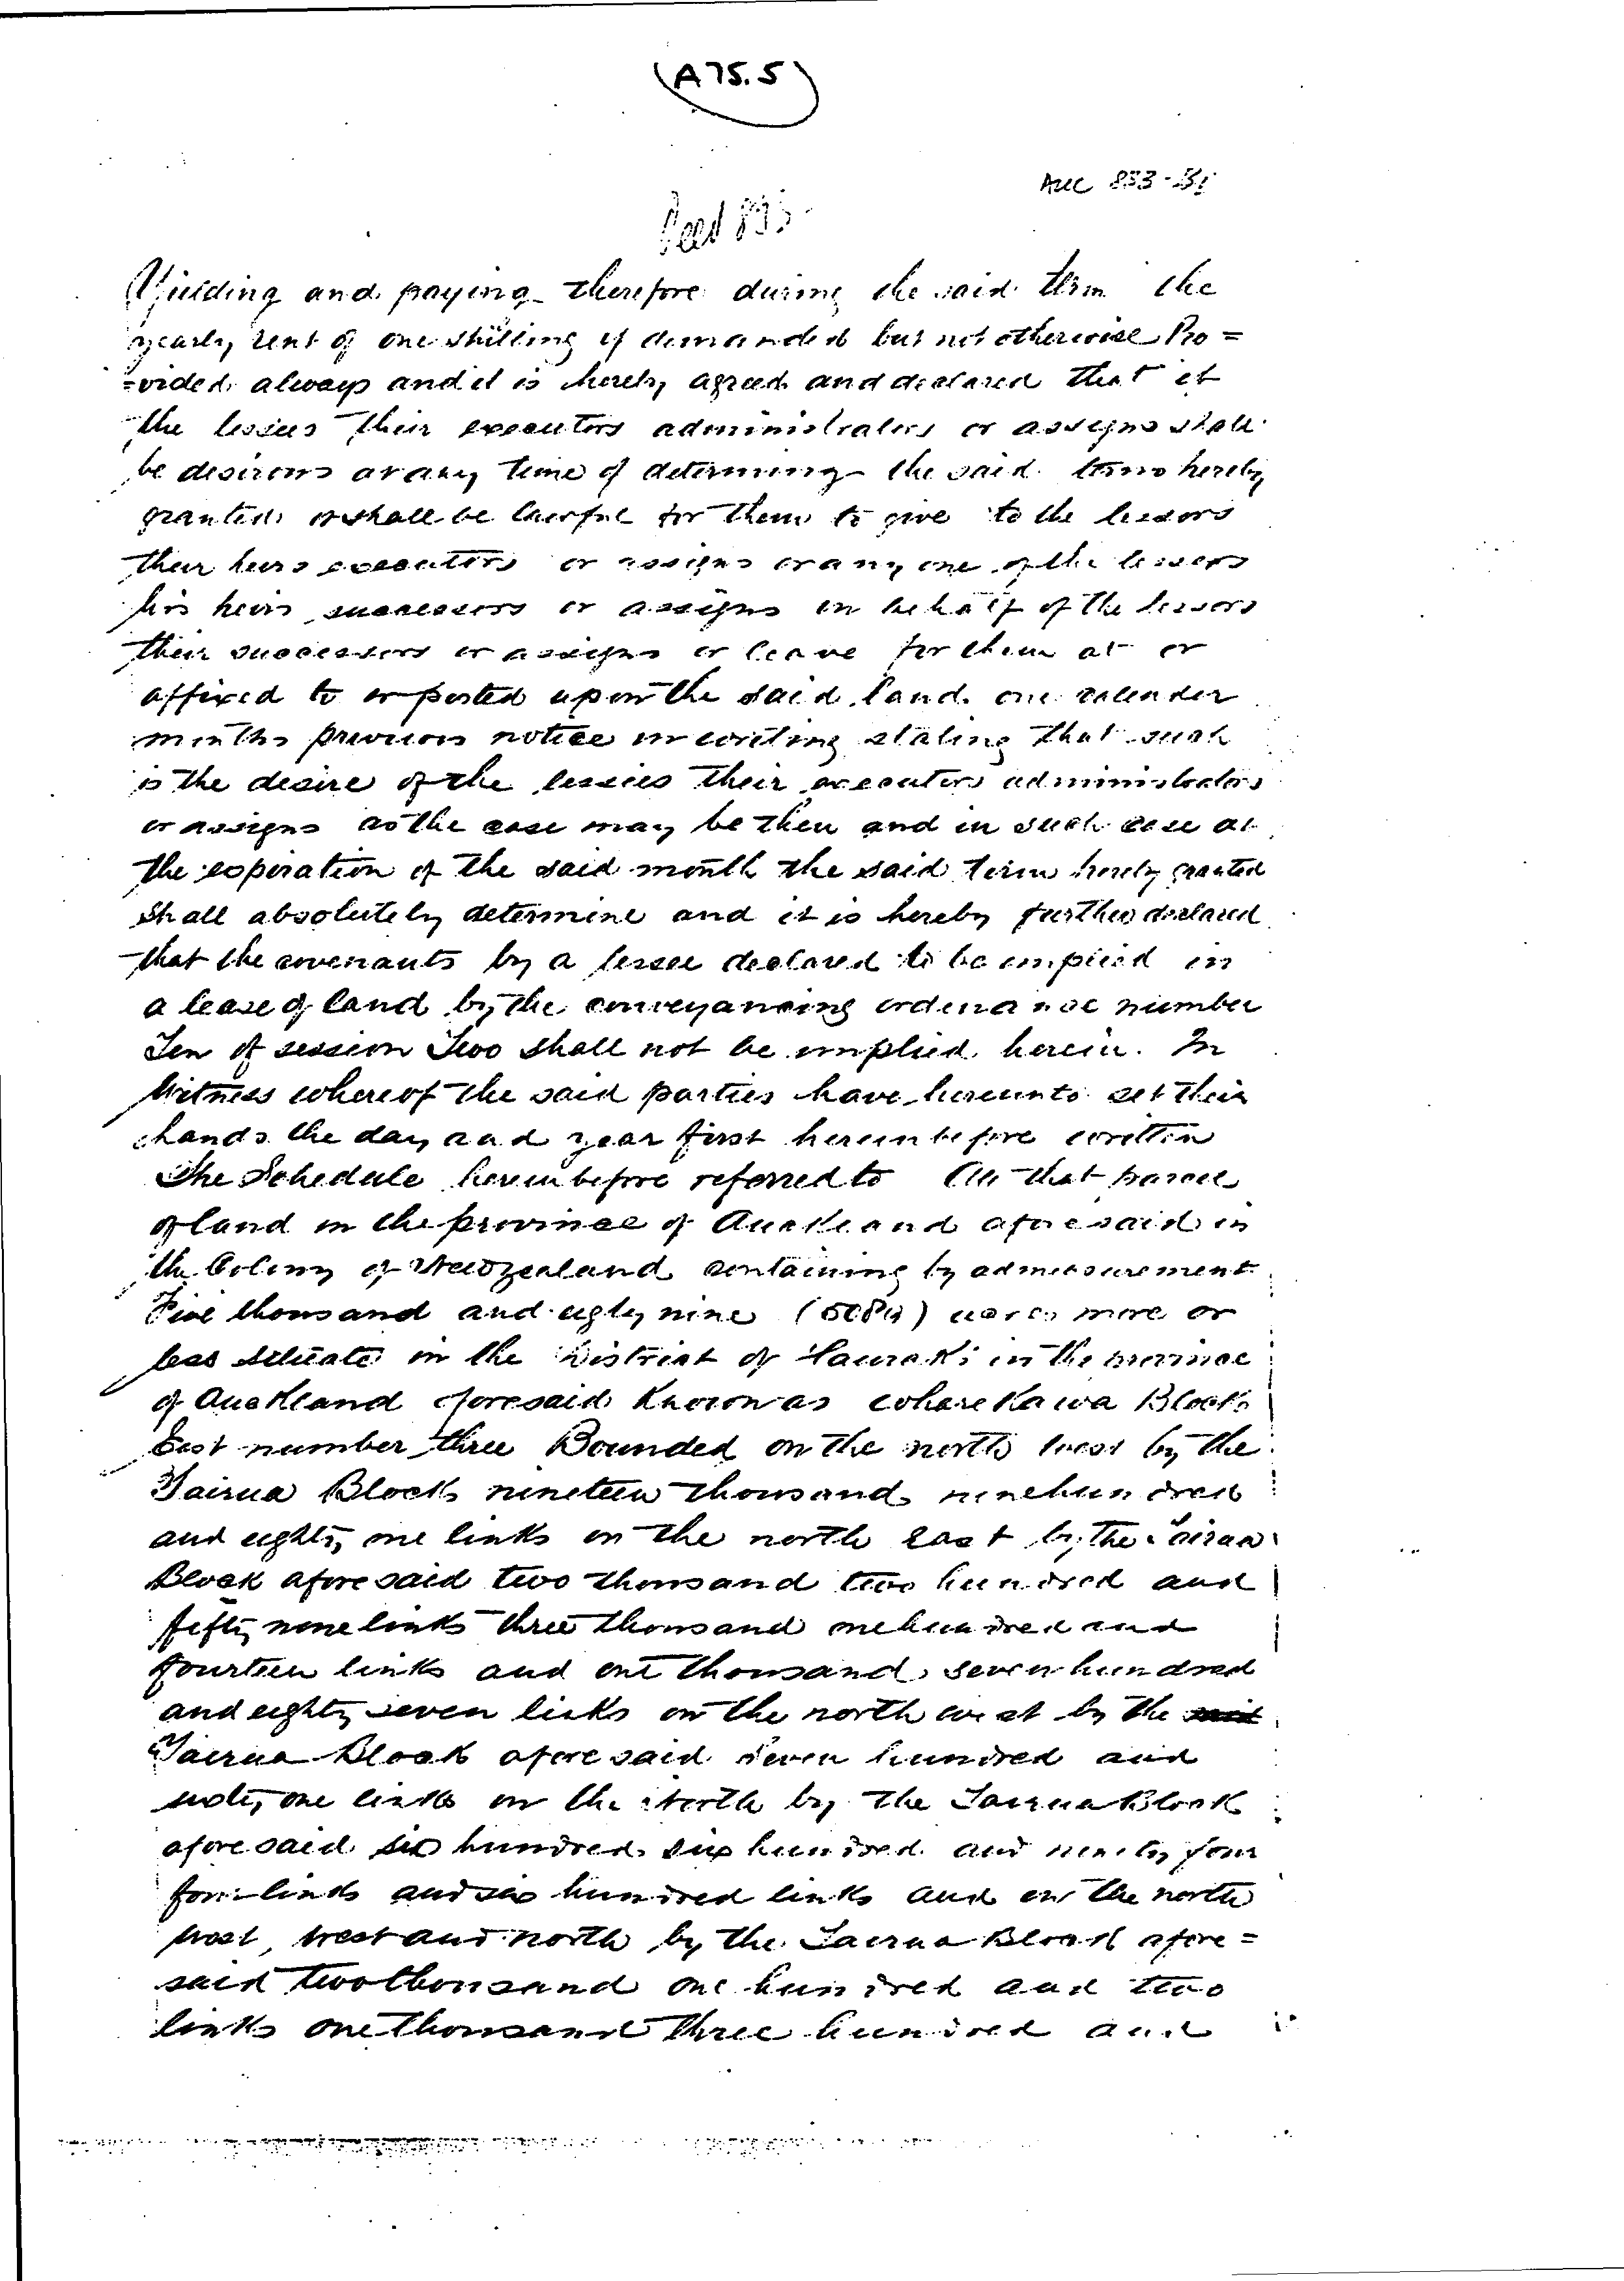 A75.5
Deed 853
Yielding and paying therefore during the said term the
yearly rent of one shilling if demanded but not otherwise Pro=
=vided always and it is hereby agreed and declared that if
the lessees their executors administrators or assigns shall
be desirous at any time of determining the said term hereby
granted it shall be lawful for them to give to the lessors
their heirs executors or assigns or any one of the lessors
his heirs successors or assigns on behalf of the lessors
their successors or assigns or leave for them at or
affixed to or posted upon the said land one calender
months previous notice in writing stating that such
is the desire of the lessees their executors administrators
or assigns as the case may be then and in such case at
the expiration of the said month the said term hereby granted
shall absolutely determine and it is hereby further declared
that the covenants by a lessee declared to be implied in
a lease of land by the conveyancing ordinance number
Ten of session Two shall not be implied herein. In
Witness whereof the said parties have hereunto set their
hands the day and year first hereinbefore written
The Schedule hereinbefore referred to All that parcel
of land in the province of Auckland aforesaid in
the Colony of Newzealand containing by admeasurement
Five thousand and eighty nine (5089) acres more or
less situate in the District of Hauraki in the province
of Auckland aforesaid Known as Wharekawa Block
East number three Bounded on the north west by the
Tairua Block nineteen thousand ninehundred
and eighty one links on the north east by the Tairua
Block aforesaid two thousand two hundred and
fifty nine links three thousand onehundred and
fourteen links and one thousand seven hundred
and eighty seven links on the north west by the
Tairua Block aforesaid seven hundred and
sixty one links on the North by the Tairua Block
aforesaid six hundred six hundred and ninety four
four links and six hundred links and on the north
west, west and north by the Tairua Block afore=
said two thousand one hundred and two
links one thousand three hundred and